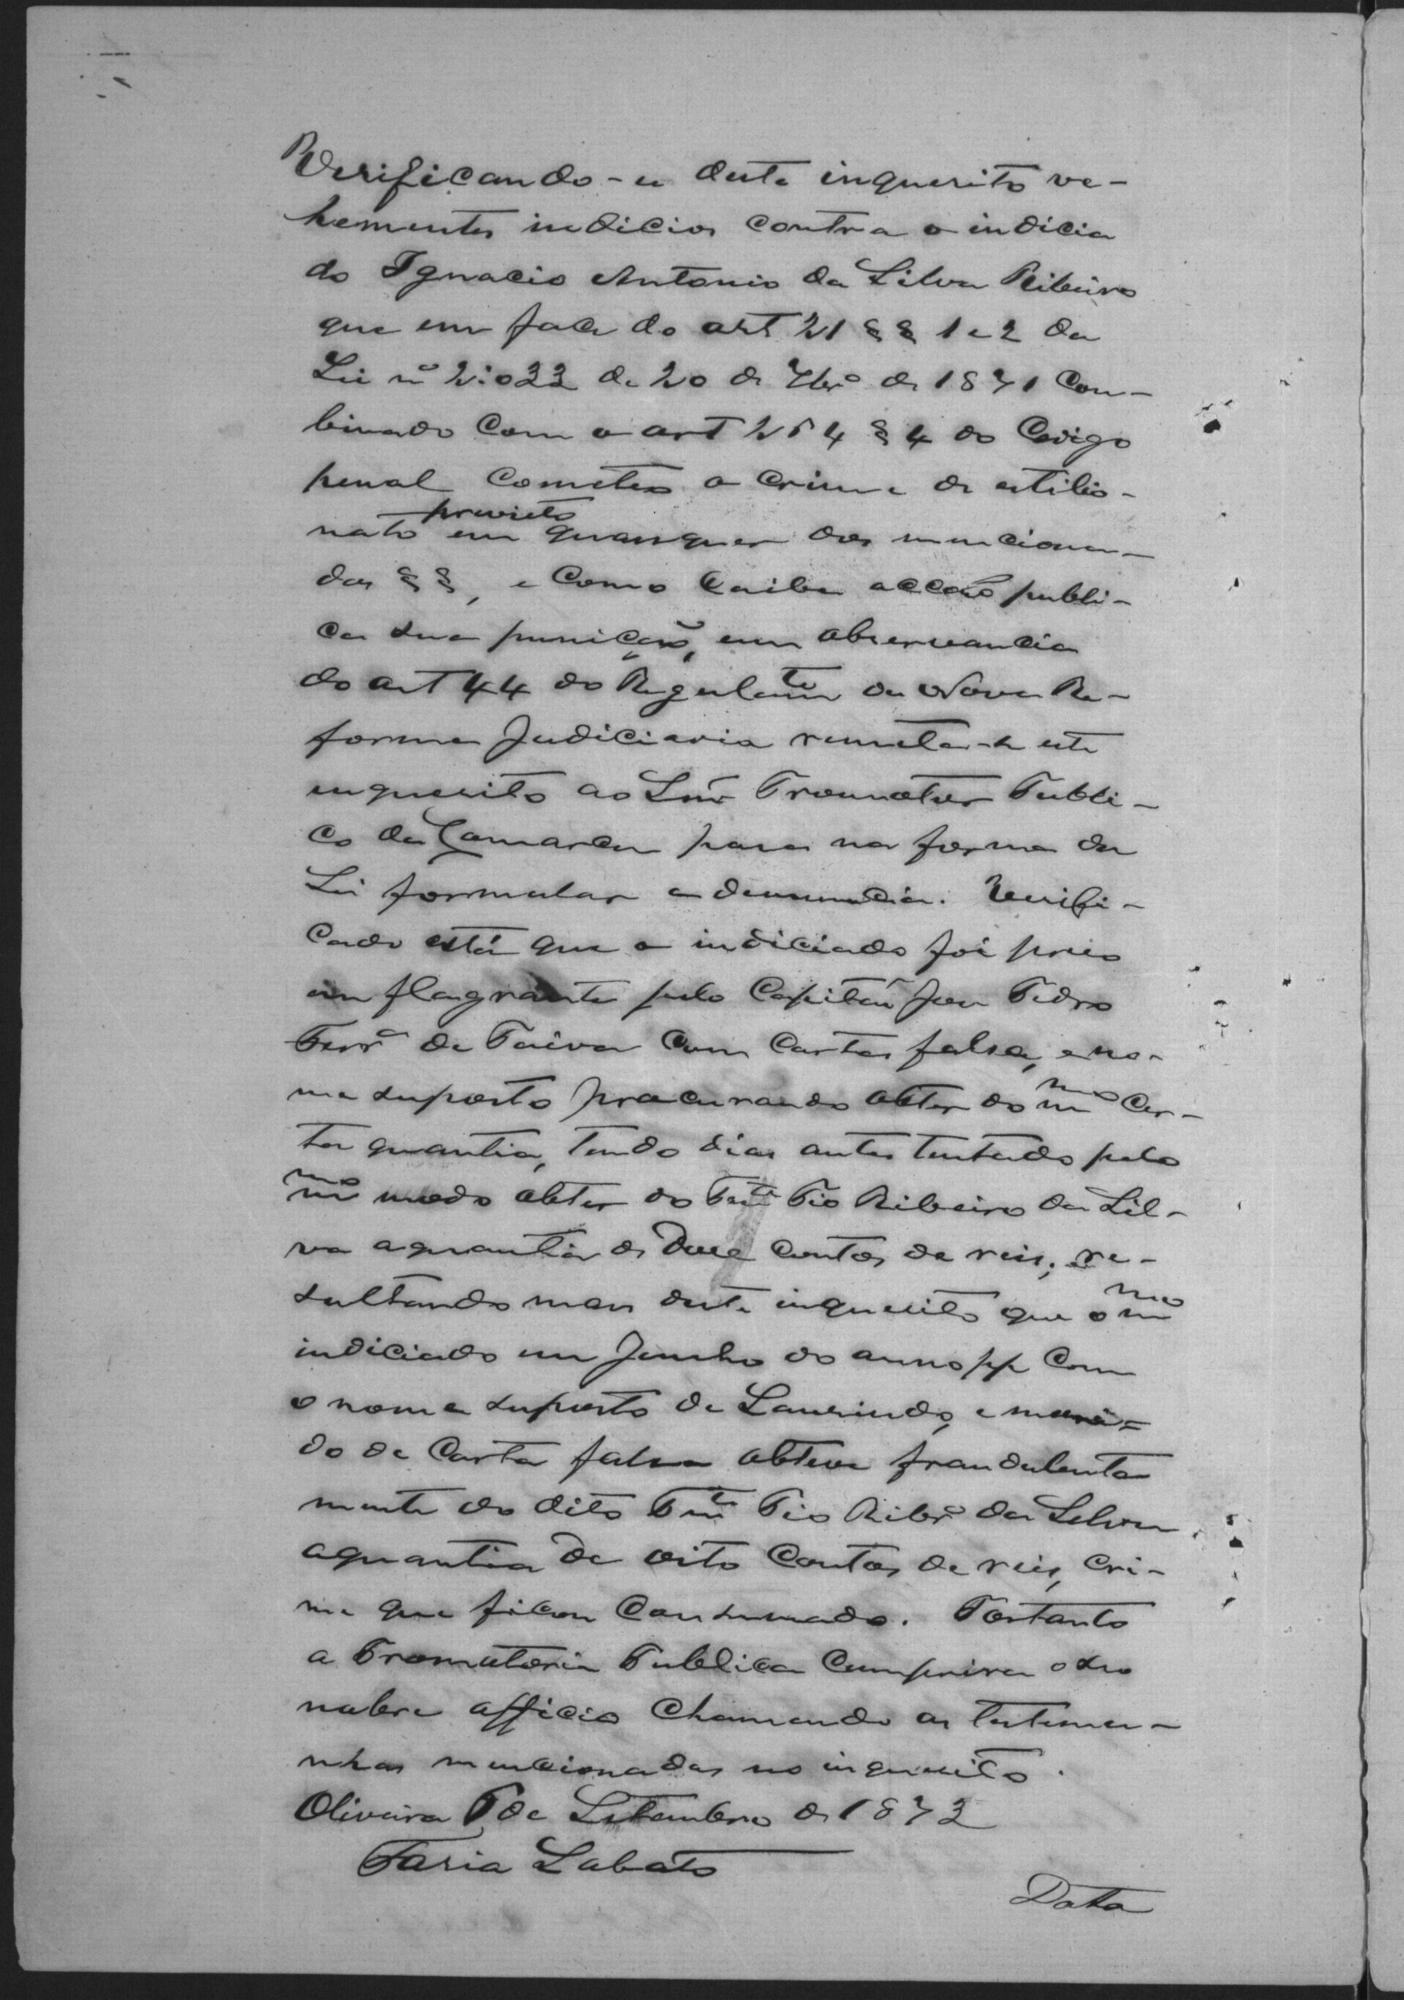 Verificando-se deste inquerito ve-
hementes indicios contra o indicia
do Ignacio Antonio da Silva Ribeiro
que em face do art 21 §§ 1 e 2 da
Lei nº 2:033 de 20 de 7brº de 1871 com-
binado com o art 264 § 4 do Codigo
penal cometeo o crime de estilio-
previsto
nato em quaesquer dos menciona-
dos §§, e como caiba acção publi-
ca sua punição, em observancia
do art 44 do Regulamto da Nova Re-
forma Judiciaria remeta-se este
inquerito ao Snr Promotor Publi-
co da Comarca para na forma da
Lei formular a denuncia. Verifi-
cado está que o indiciado foi preso
em flagrante pelo Capitão Jose Pedro
Ferrª de Paiva com cartas falsa, e no-
me suposto procurando obter do mmo cer-
ta quantia, tendo dias antes tentado pelo
mmo modo obter do Tente Pio Ribeiro da Sil-
va a quantia de doze contos de reis; re-
sultando mais deste inquerito que o mmo
indiciado em Junho do anno pp com
o nome suposto de Laurindo, e muni-
do de carta falsa obteve fraudulenta
mente do dito Tente Pio Ribrº da Silva
a quantia de oito contos de reis, cri-
me que ficou consumado. Portanto
a Promotoria Publica cumprira o seu
nobre officio chamando as testemu-
nhas mencionadas no inquerito.
Oliveira 6 de Setembro de 1873
Faria Lobato
Data